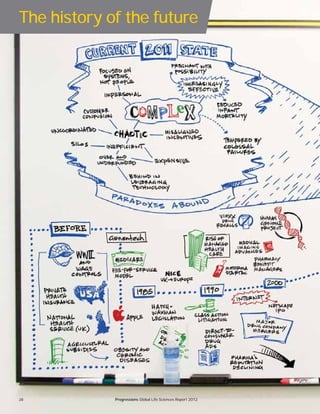 The history of the future
CURRENT 2011 STATE
FOCUSED ON
SYSTEMS,
NOT PEOPLE
PREGNANT WITH
POSSIBILITY
INCREASINGLY
EFFECTIVE
IMPERSONAL
CUSTOMER
CONFUSION
COMPLEX
REDUCED
INFANT
MORTALITY
UNCOORDINATED
CHAOTIC
MISALIGNED
INCENTIVES
TEMPERED BY
COLOSSAL
FAILURES
SILOS
INEFFICIENT
OVER AND
UNDERFUNDED
EXPENSIVE
BEHIND IN
LEVERAGING
TECHNOLOGY
PARADOXES ABOUND
BEFORE
Genentech
VIOXX
DRUG
RECALLS
HUMAN
GENOME
PROJECT
RISE OF
MANAGED
HEALTH
CARE
MEDICAL
IMAGING
ADVANCES
WWII
AND
WAGE
CONTROLS
MEDICARE
FEE-FOR-SERVICE
MODEL
NICE
UK→EUROPE
PHARMACY
BENEFIT
MANAGERS
1985
1990
2000
PRIVATE
HEALTH
INSURANCE
USA
INTERNET
NETSCAPE
IPO
HATCH-
WAXMAN
LEGISLATION
CLASS ACTION
LITIGATION
NATIONAL
HEALTH
SERVICE (UK)
APPLE
MAJOR
DRUG COMPANY
MERGERS
DIRECT-TO-
CONSUMER
DRUG
ADS
AGRICULTURAL
SUBSIDIES
OBESITY AND
CHRONIC
DISEASES
PHARMA'S
REPUTATION
DECLINING
28
Progressions Global Life Sciences Report 2012